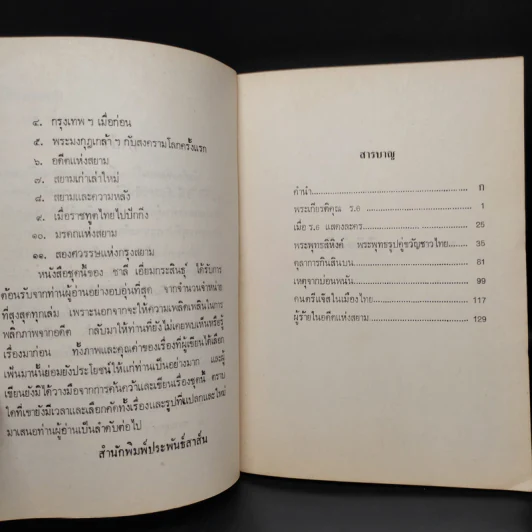 ๔. กรุงเทพ ฯ เมื่อก่อน
๕. พระมงกุฎเกล้า ฯ กับสงครามโลกครั้งแรก
๖. อดีตแห่งสยาม
๗. สยามเก่าเล่าใหม่
๘. สยามและความหลัง
๙. เมื่อราชทูตไทยไปปักกิ่ง
๑๐. มรดกแห่งสยาม
๑๑. สองศตวรรษแห่งกรุงสยาม
หนังสือชุดนี้ของ ชาลี เอี่ยมกระสินธุ์ ได้รับการ
ต้อนรับจากท่านผู้อ่านอย่างอบอุ่นที่สุด จากจำนวนจำหน่าย
ที่สูงสุดทุกเล่ม เพราะนอกจากจะให้ความเพลิดเพลินในการ
พลิกภาพจากอดีต กลับมาให้ท่านที่ยังไม่เคยพบเห็นหรือรู้
เรื่องมาก่อน ทั้งภาพและคุณค่าของเรื่องที่ผู้เขียนได้เลือก
เฟ้นมานั้นย่อมยังประโยชน์ให้แก่ท่านเป็นอย่างมาก และผู้
เขียนยังมิได้วางมือจากการค้นคว้าและเขียนเรื่องชุดนี้ ตราบ
ใดที่เขายังมีเวลาและเลือกคัดทั้งเรื่องและรูปที่แปลกและใหม่
มาเสนอท่านผู้อ่านเป็นลำดับต่อไป
สำนักพิมพ์ประพันธ์สาส์น
สารบาญ
คำนำ ก
พระเกียรติคุณ ร.๖ 1
เมื่อ ร.๖ แสดงละคร 25
พระพุทธสิหิงค์ พระพุทธรูปคู่ขวัญชาวไทย 35
ตุลาการกินสินบน 81
เหตุจากบ่อนพนัน 99
ดนตรีแจ๊สในเมืองไทย 117
ผู้ร้ายในอดีตแห่งสยาม 129